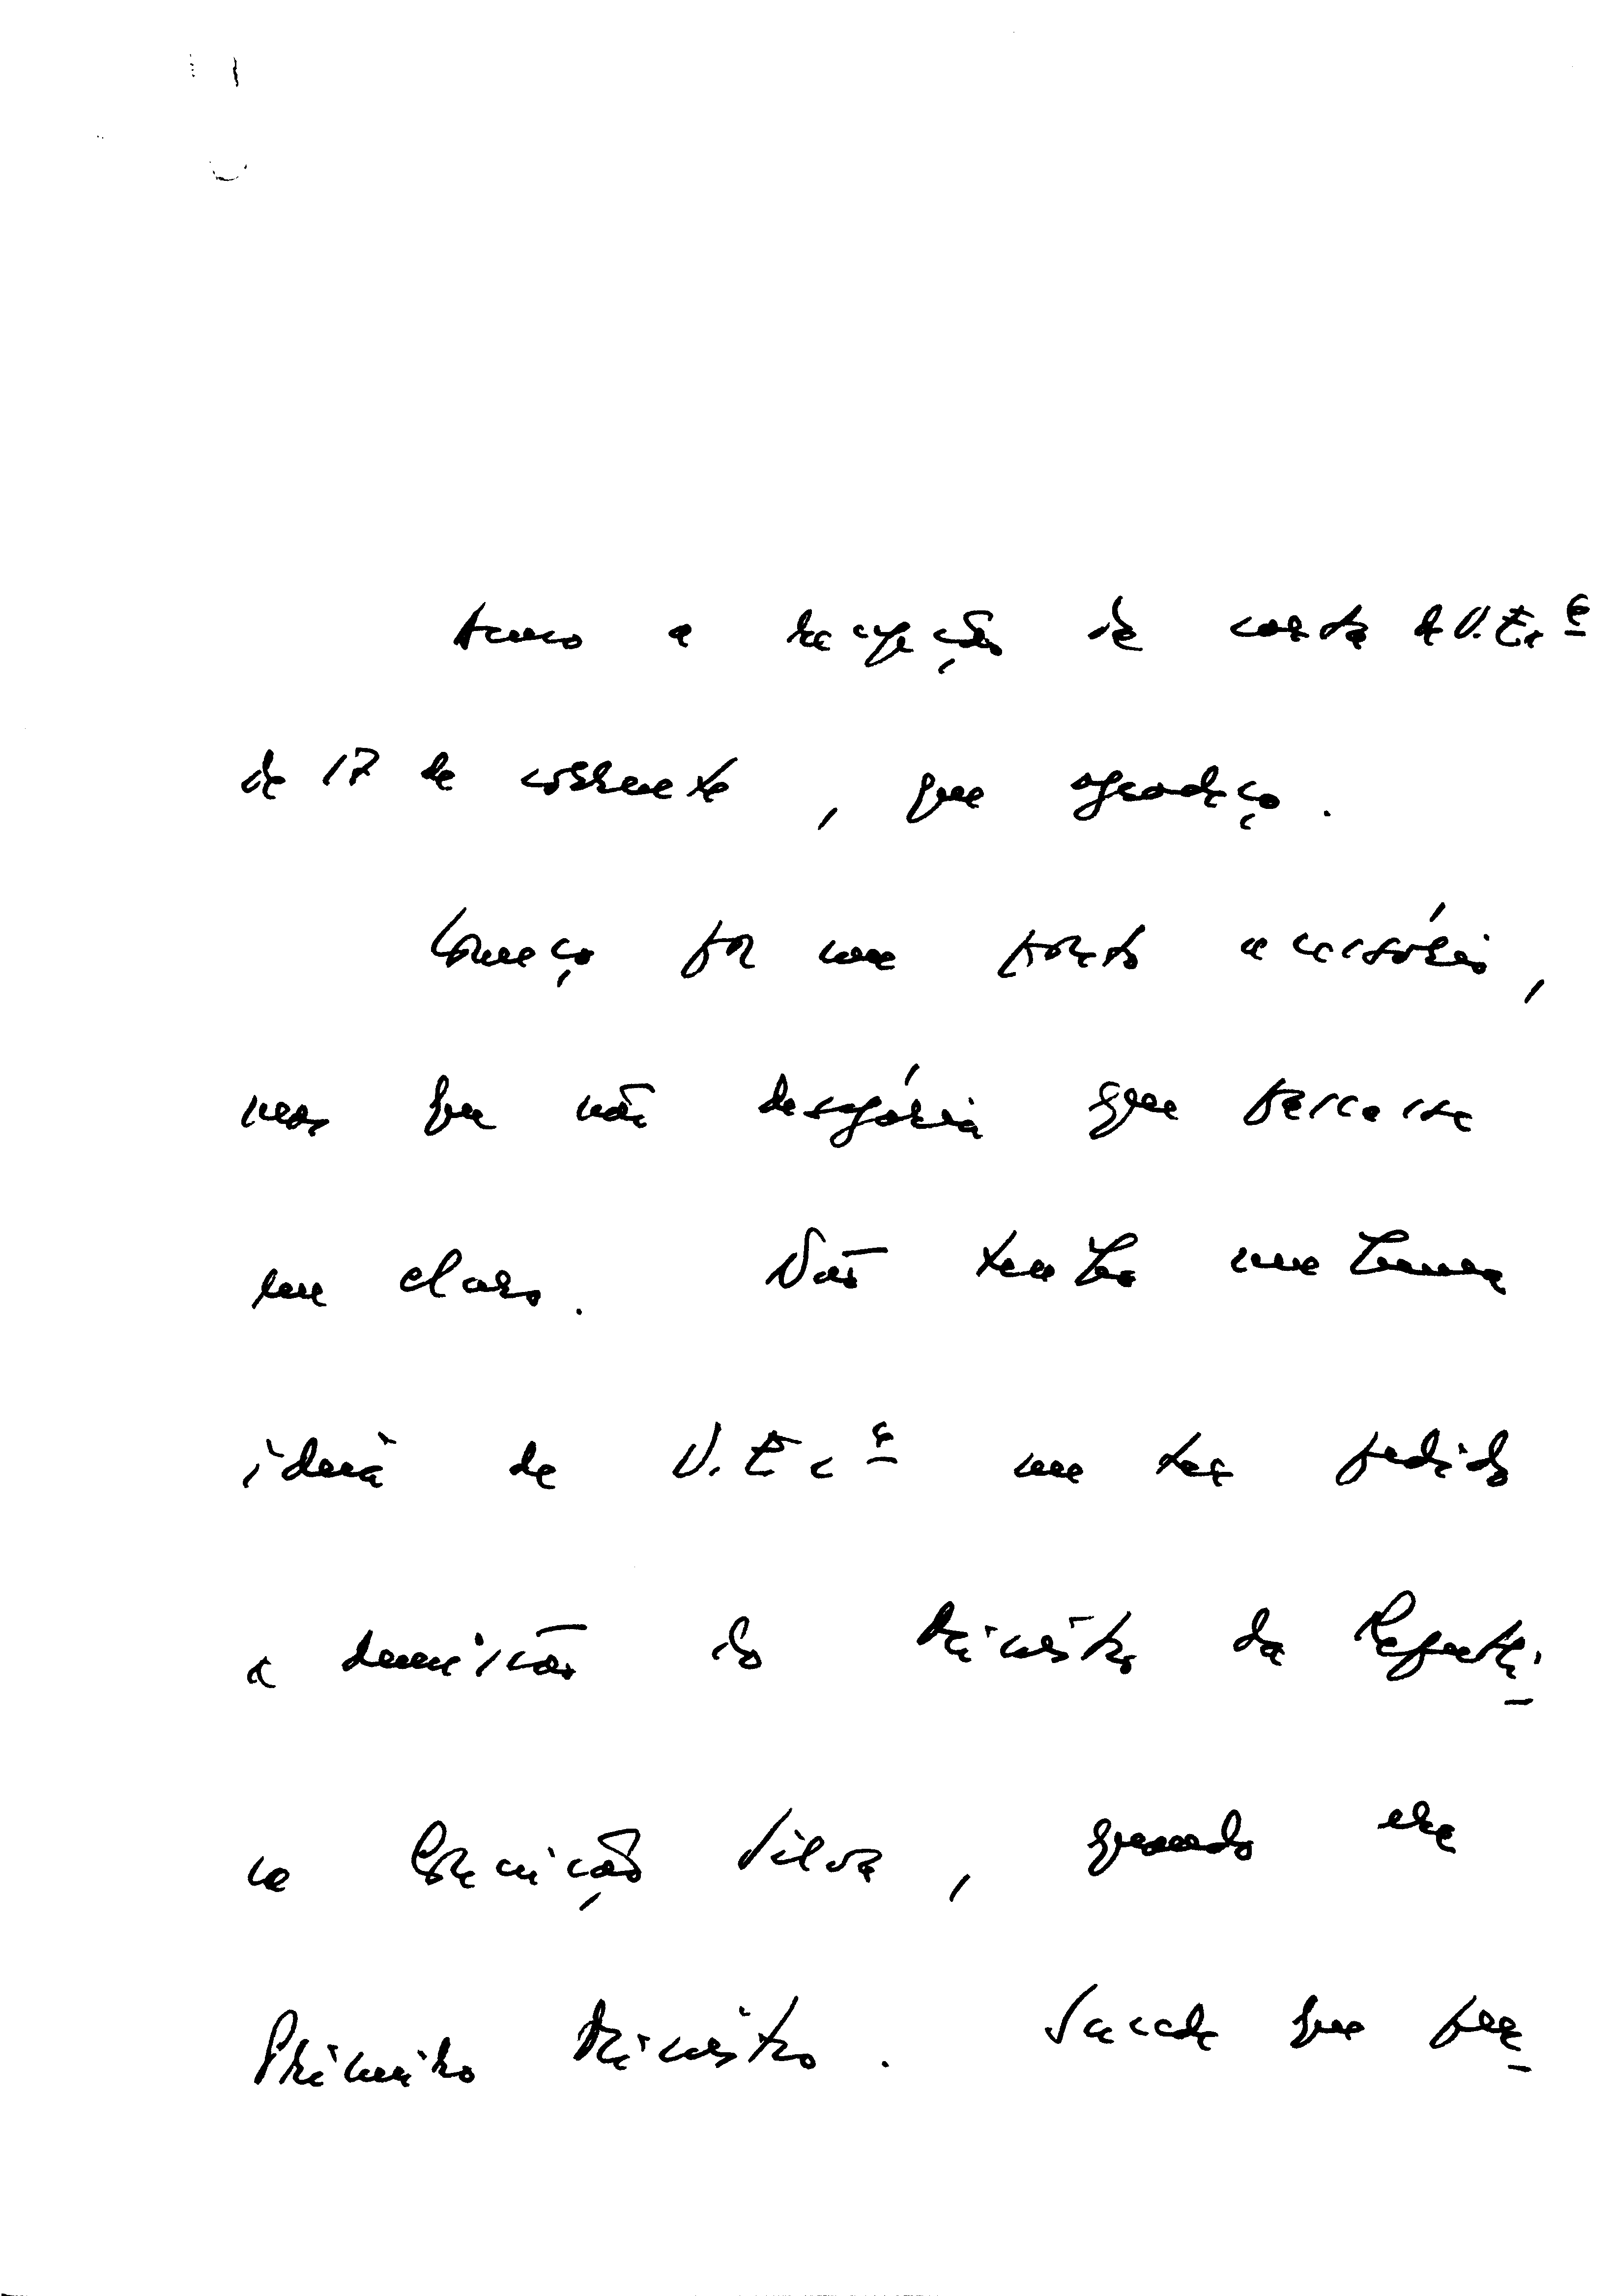 Acuso a recepção da carta de V. Ex.ª
de 17 do corrente, que agradeço.
Começo por um ponto acessório,
mas que não desejaria que passasse
em claro. Não tenho nenhuma
ideia de V. Exª me ter pedido
a demissão do Ministro da República
Conceição Silva, quando era
Primeiro Ministro. Sucede que